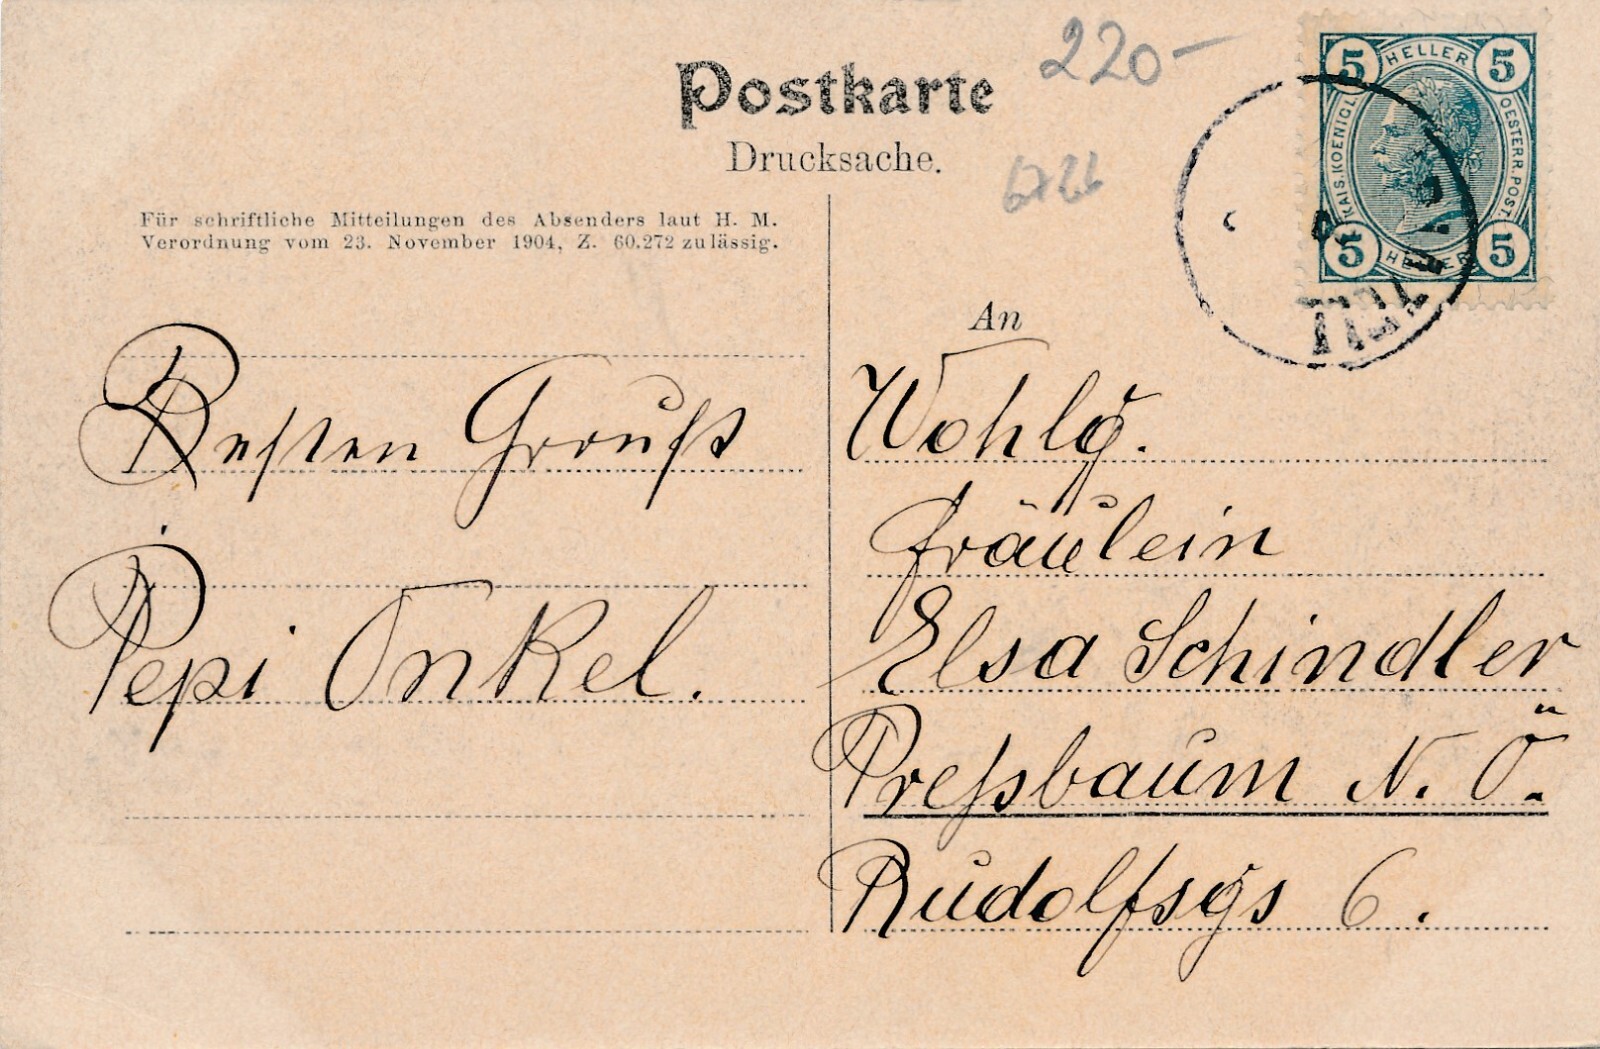 Postkarte
Drucksache.
220-
Für schriftliche Mitteilungen des Absenders laut H. M.
Verordnung vom 23. November 1904, Z. 60.272 zulässig.
5 HELLER 5
KAIS. KOENIGL. OESTERR. POST.
5 HELLER 5
Besten Gruß
Pepi Onkel.
An
Wohlg.
Fräulein
Elsa Schindler
Preßbaum N. Ö.
Rudolfsgs 6.